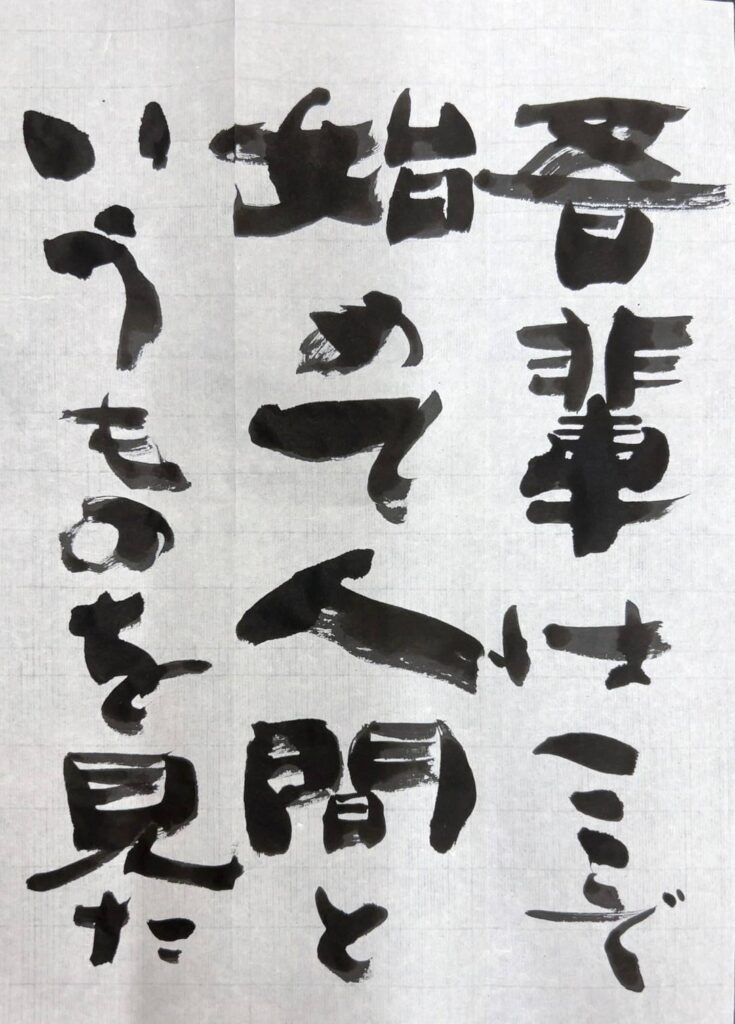 吾輩はここで
始めて人間と
いうものを見た